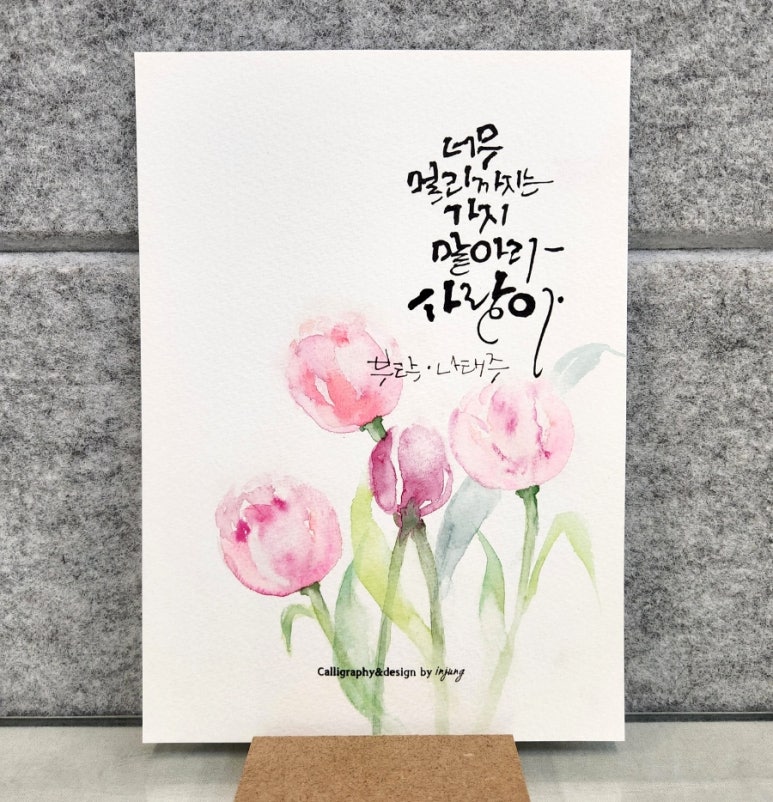 너무
멀리까지는
가지
말아라
사랑아
부탁·나태주
Calligraphy&design by injung